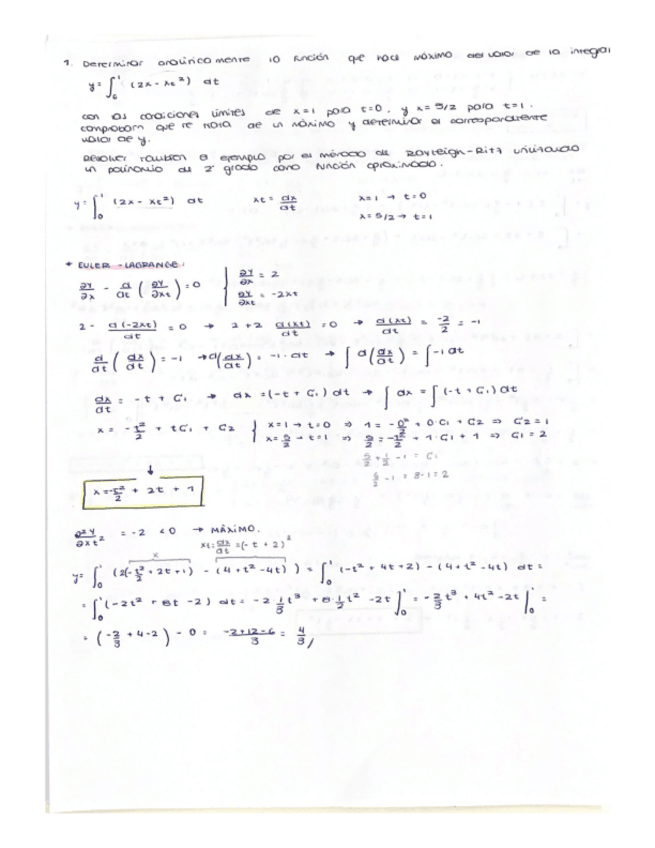 1. Determinar analíticamente la función que hace máximo el valor de la integral
y = ∫₀¹ (2x - xt²) dt
con las condiciones límites de x=1 para t=0, y x=5/2 para t=1.
comprobar que se trata de un máximo y determinar el correspondiente
valor de y.
Resolver también el ejemplo por el método de Rayleigh-Ritz utilizando
un polinomio de 2º grado como función aproximada.
y = ∫₀¹ (2x - xt²) dt xt = dx/dt x=1 → t=0
x=5/2 → t=1
* EULER-LAGRANGE:
∂Y/∂x - d/dt (∂Y/∂xt) = 0 | ∂Y/∂x = 2
∂Y/∂xt = -2xt
2 - d(-2xt)/dt = 0 → 2+2 d(xt)/dt = 0 → d(xt)/dt = -2/2 = -1
d/dt (dx/dt) = -1 → d(dx/dt) = -1·dt → ∫ d(dx/dt) = ∫ -1 dt
dx/dt = -t + C1 → dx = (-t + C1) dt → ∫ dx = ∫ (-t + C1) dt
x = -t²/2 + tC1 + C2 { x=1 → t=0 ⇒ 1 = -0²/2 + 0·C1 + C2 ⇒ C2=1
x=5/2 → t=1 ⇒ 5/2 = -1²/2 + 1·C1 + 1 ⇒ C1=2
5/2 + 1/2 - 1 = C1
6/2 - 1 = 3-1 = 2
↓
x = -t²/2 + 2t + 1
∂²Y/∂xt² = -2 < 0 → MÁXIMO.
xt: dx/dt = (-t + 2)²
x
y = ∫₀¹ (2(-t²/2 + 2t + 1) - (4 + t² - 4t)) = ∫₀¹ (-t² + 4t + 2) - (4 + t² - 4t) dt =
= ∫₀¹ (-2t² + 8t - 2) dt = -2 1/3 t³ + 8 1/2 t² - 2t ]₀¹ = -2/3 t³ + 4t² - 2t ]₀¹ =
= (-2/3 + 4 - 2) - 0 = (-2+12-6)/3 = 4/3 //